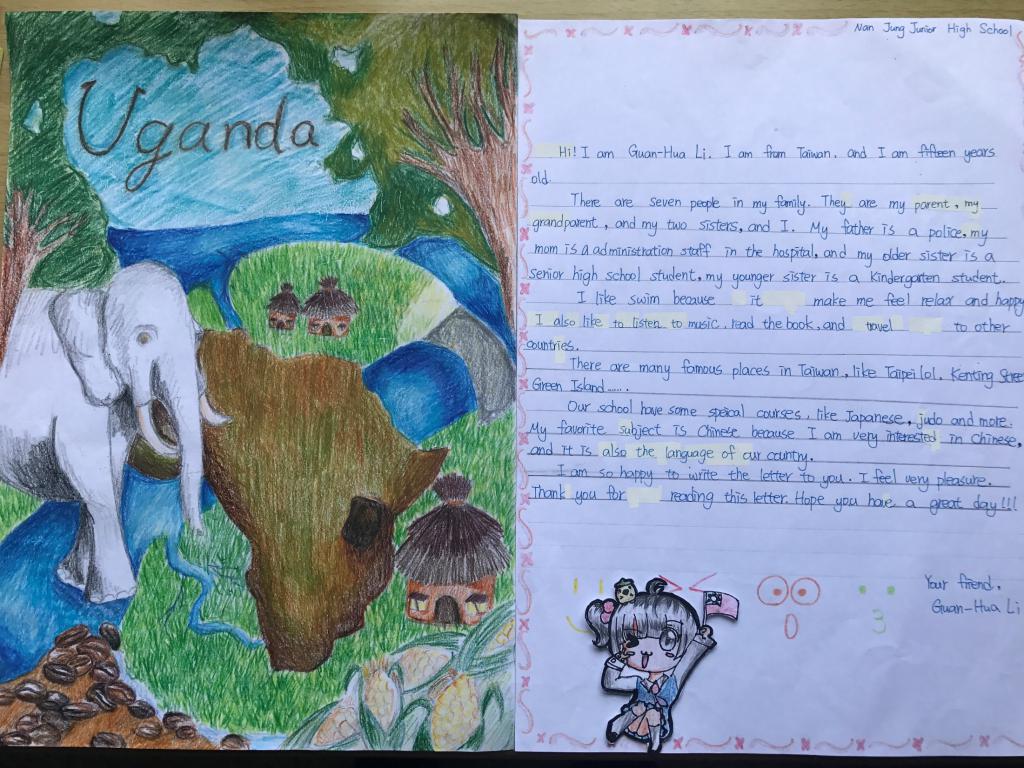 Uganda
Nan Jung Junior High School
Hi! I am Guan-Hua Li. I am from Taiwan. and I am fifteen years
old.
There are seven people in my family. They are my parent, my
grandparent, and my two sisters, and I. My father is a police, my
mom is a administration staff in the hospital, and my older sister is a
senior high school student, my younger sister is a kindergarten student.
I like swim because it make me feel relax and happy
I also like to listen to music, read the book, and travel to other
countries.
There are many famous places in Taiwan, like Taipei 101, Kenting Street
Green Island......
Our school have some speical courses, like Japanese, judo and more.
My favorite subject is Chinese because I am very interested in Chinese,
and it is also the language of our country.
I am so happy to write the letter to you. I feel very pleasure.
Thank you for reading this letter. Hope you have a great day!!!
Your friend,
Guan-Hua Li